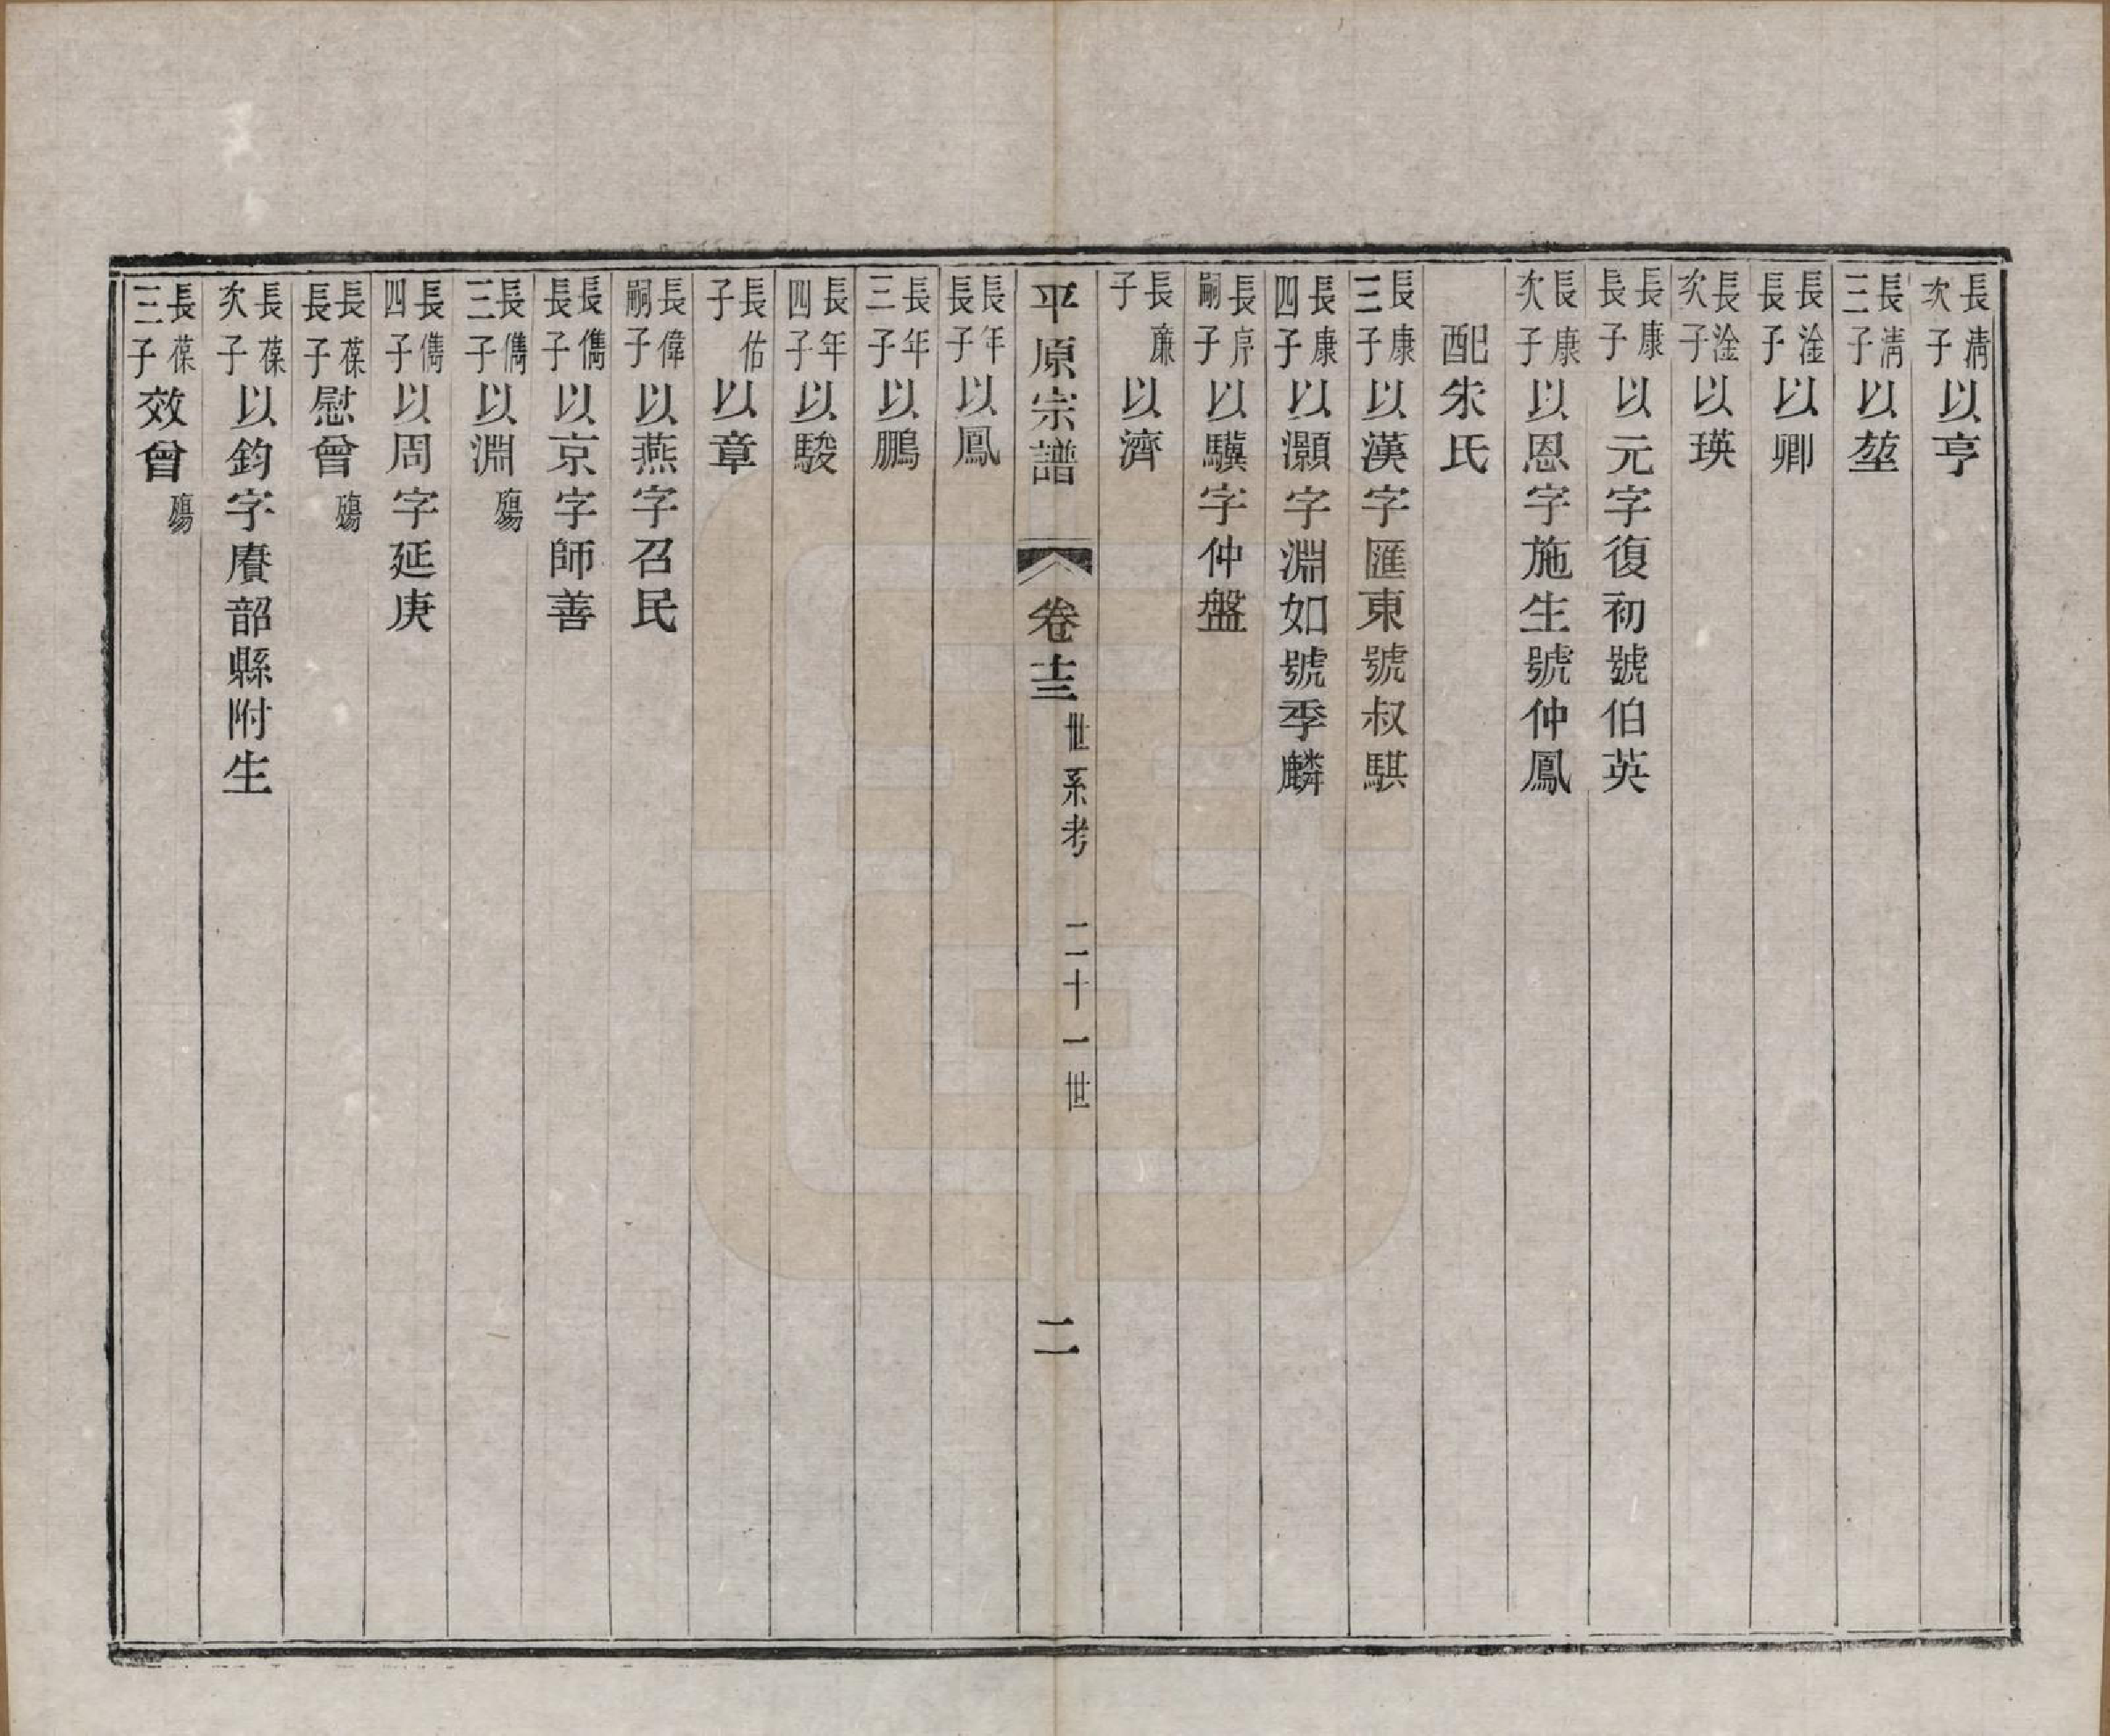 長淸次子以亨
長淸三子以堃
長淦長子以卿
長淦次子以瑛
長康長子以元字復初號伯英
長康次子以恩字施生號仲鳳
配朱氏
長康三子以漢字匯東號叔騏
長康四子以灝字淵如號季麟
長序嗣子以驥字仲盤
長廉子以濟
平原宗譜 卷十三 世系考 二十一世 二
長年長子以鳳
長年三子以鵬
長年四子以駿
長佑子以章
長偉嗣子以燕字召民
長儁長子以京字師善
長儁三子以淵殤
長儁四子以周字延庚
長葆長子慰曾殤
長葆次子以鈞字賡韶縣附生
長葆三子效曾殤